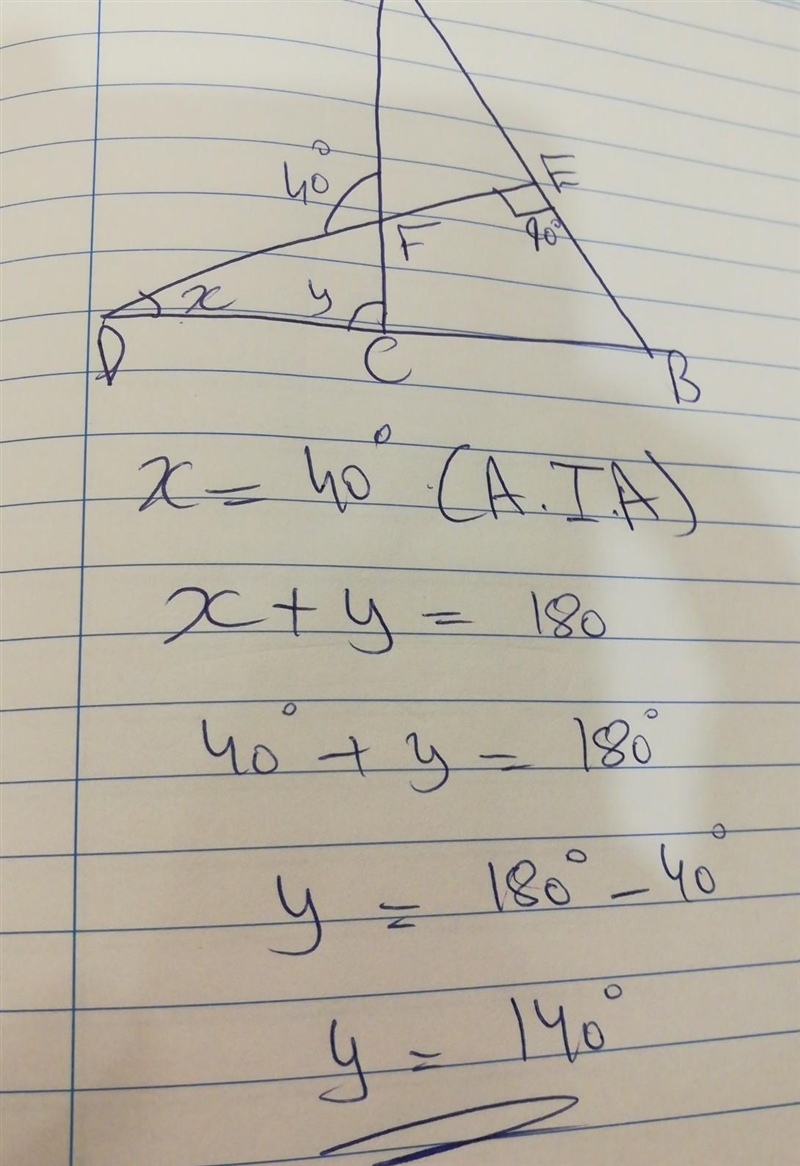 40°
E
F
90°
x
y
D
C
B
x = 40° (A.I.A)
x + y = 180
40° + y = 180°
y = 180° - 40°
y = 140°